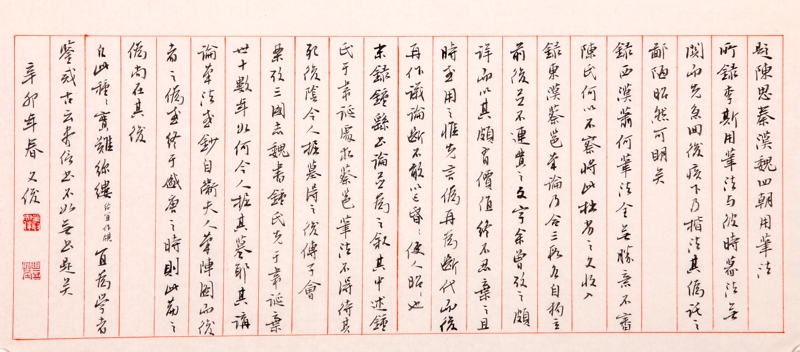 题陈思秦汉魏四朝用笔法
所录李斯用笔法与彼时篆法无
关而先鱼回后痰下乃楷法其伪托之
鄙陋昭然可明矣
录西汉萧何笔法全无胜意不审
陈氏何以不察将此拙劣之文收入
录东汉蔡邕笔论乃合三段各自独立
前后互不连贯之文字余曾考之颇
详而以其颇有价值终不忍弃之且
时至用之惟先言伪再为断代而后
再作识论断不敢以己昏昏使人昭昭也
末录钟繇书论互为之叙其中述钟
氏于韦诞处求蔡邕笔法不得待其
死后阴令人掘墓得之后传子会
里考三国志魏书钟氏先于韦诞弃
世十数年如何令人掘其墓耶其讲
论笔法或钞自卫夫人笔阵图而后
者之伪或终于盛唐之时则此篇之
伪尚在其后
凡此种种实难弥缕 宜为学者
鉴或古云者信书不如无书是矣
辛卯年春又俊